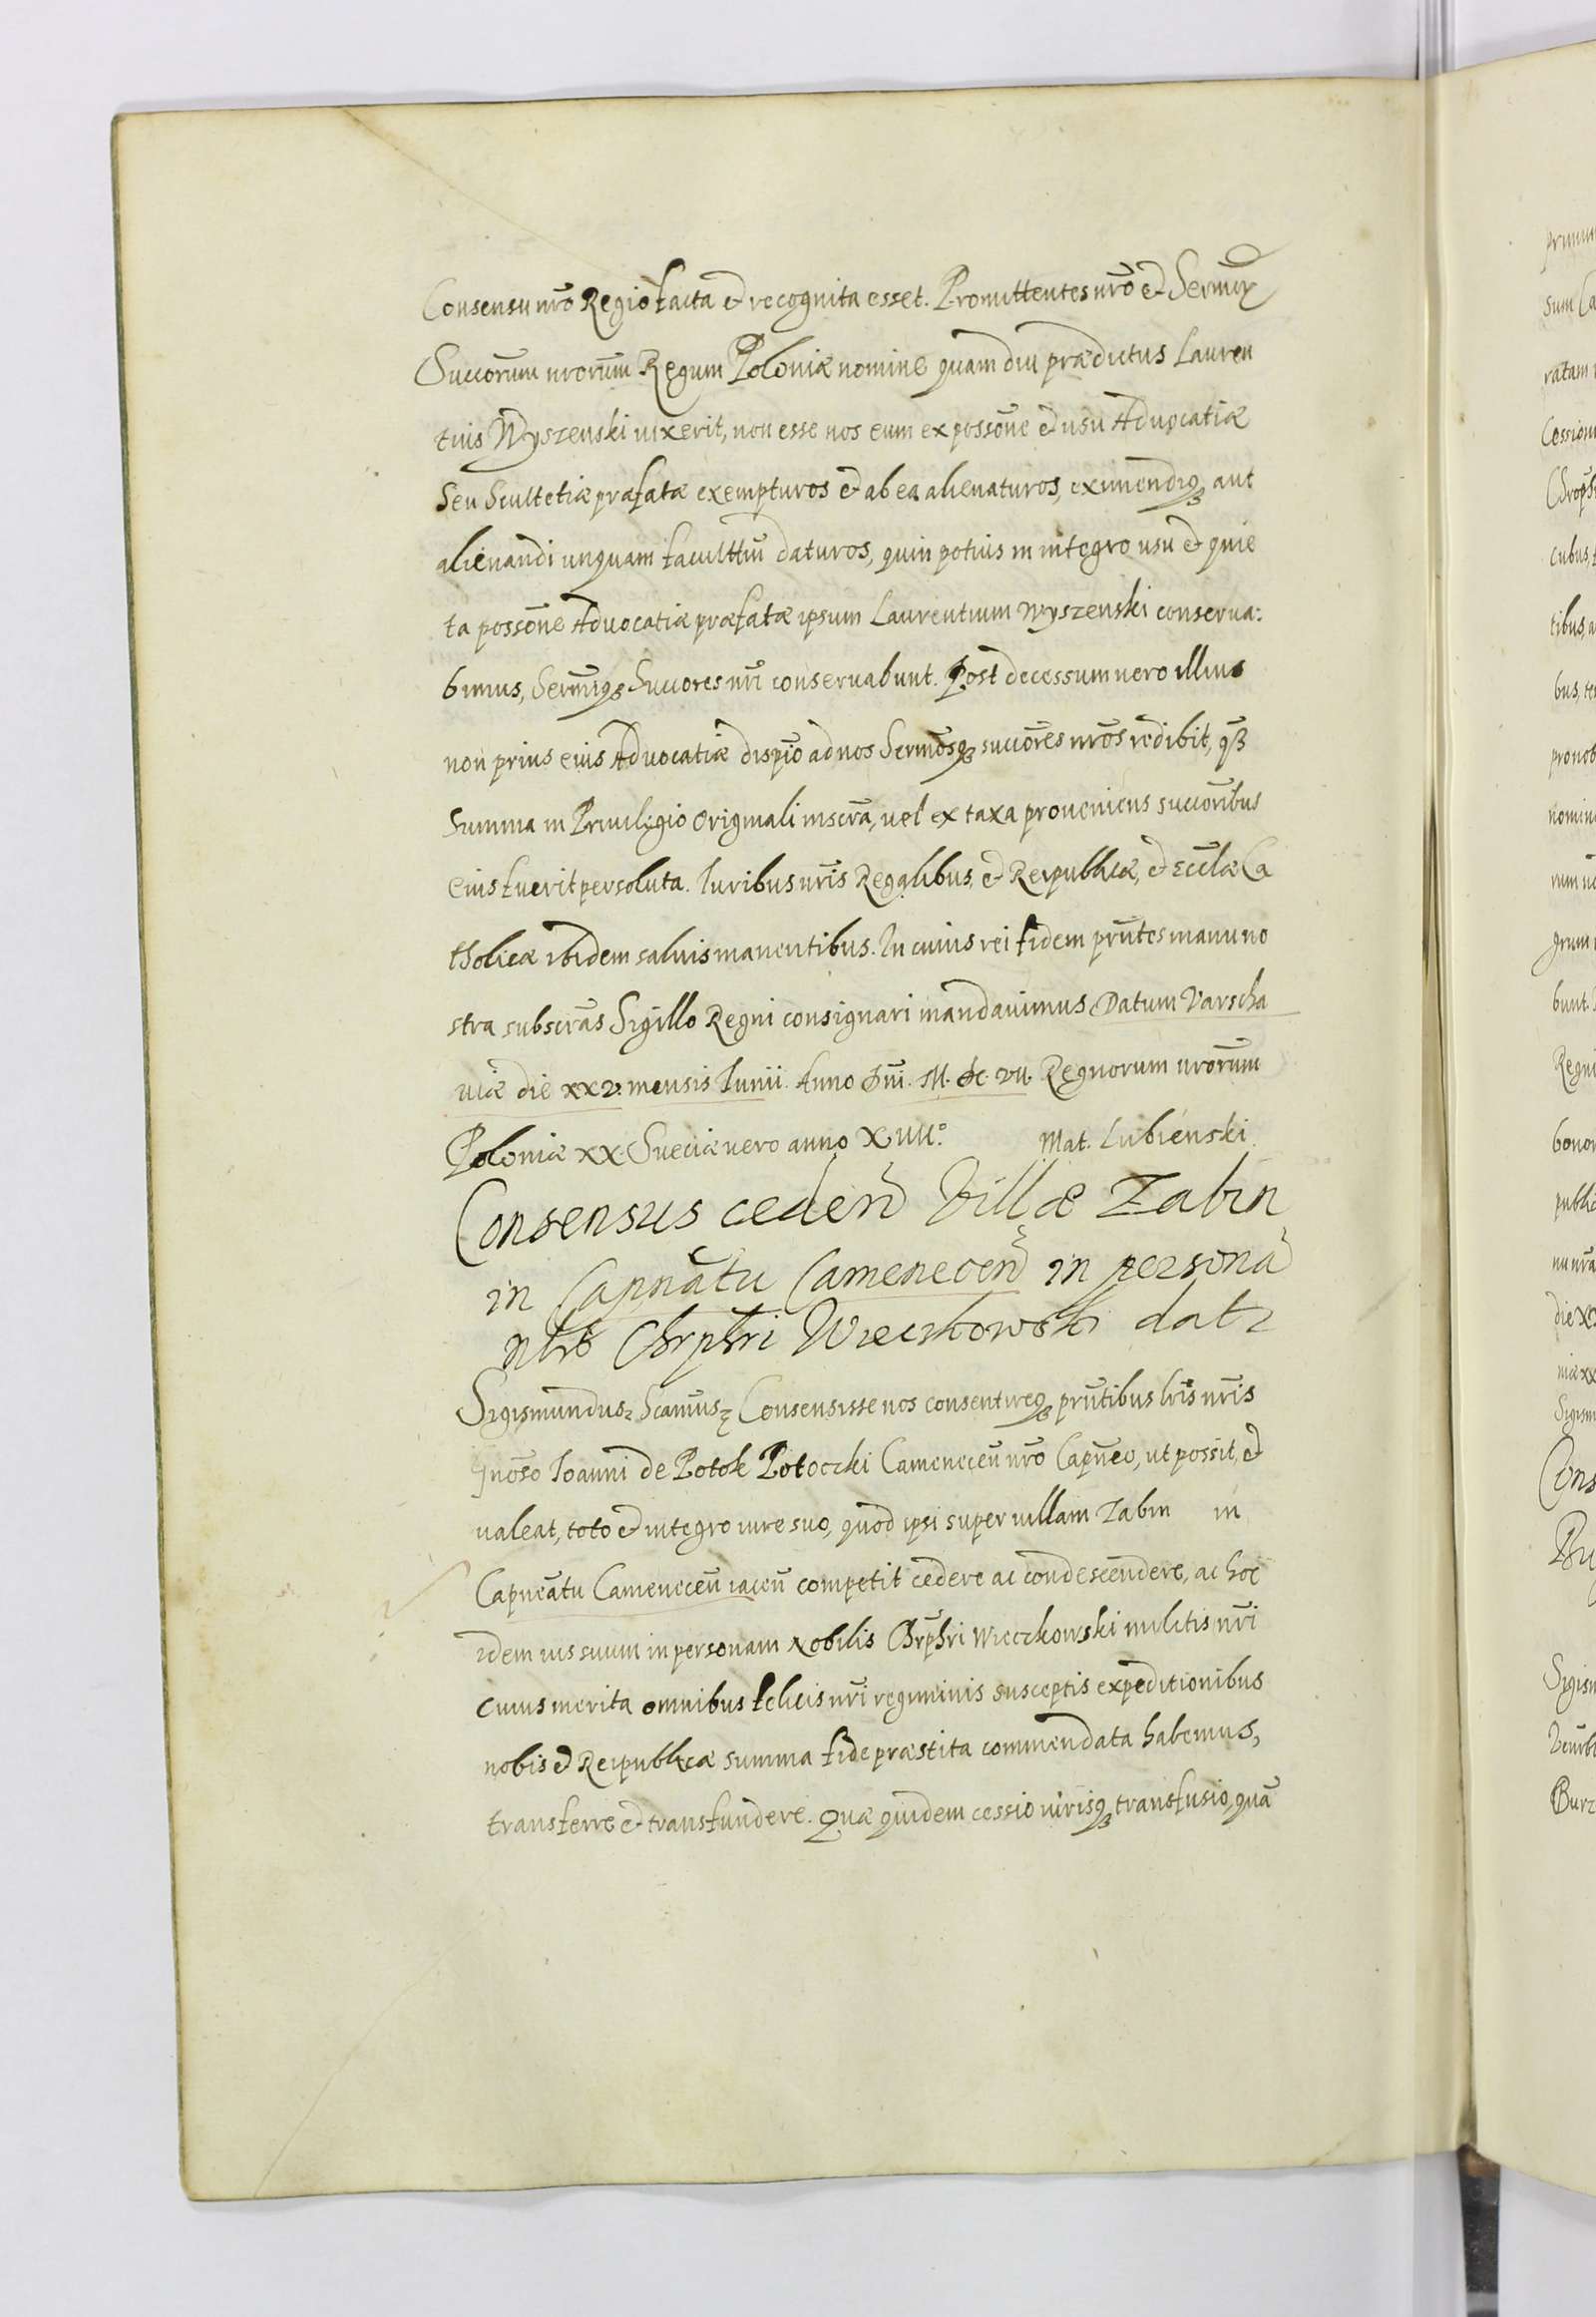 Consensu nr̃o Regio facta et recognita esset. Promittentes nr̃o et Serm̃or
Succorũm nrorũm Regum Poloniæ nomine quam diu prædictus Lauren
tius Wyszenski vixerit, non esse nos eum ex possõne et usu Advocatiæ
seu Scultetiæ præfatæ exempturos et ab ea alienaturos, eximendiqꝫ aut
alienandi unquam faculttẽm daturos, quin potius in integro usu et quie
ta possõne Advocatiæ præfatæ ipsum Laurentium Wyszenski conserva:
bimus, Serm̃iqꝫ Succores nr̃i conservabunt. Post decessum vero illius
non prius eius Advocatiæ dispõ ad nos Serm̃osqꝫ succõres nr̃os redibit, qꝫ̃
summa in Privilegio Originali inscr̃a, vel ex taxa proveniens succõribus
eius fuerit persoluta. Iuribus nr̃is Regalibus, et Reipublicæ, et Eccl̃æ Ca
tholicæ ibidem salvis manentibus. In cuius rei fidem pr̃ntes manu no
stra subscr̃as Sigillo Regni consignari mandavimus. Datum Varscha
viæ die xxv. mensis Iunii. Anno Dñi. M. DC. VII. Regnorum nrorũm
Poloniæ xx. Sueciæ vero anno XIIII.º Mat. Lubienski
Consensus ceden̄ Villæ Zabin
in Capnãtu Camenecen̄ in persona
nblis Chrp̃hri Wieczkowski dat
Sigismundus. Scam̃us. Consensisse nos consentireqꝫ pr̃ntibus lr̃is nr̃is
Gnõso Ioanni de Potok Potoczki Cameneceñ nr̃o Capñeo, ut possit, et
valeat, toto et integro iure suo, quod ipsi super villam Zabin in
Capneãtu Cameneceñ iaceñ competit cedere ac condescendere, ac hoc
idem ius suum in personam Nobilis Chrp̃hri Wieczkowski militis nr̃i
cuius merita omnibus felicis nr̃i regiminis susceptis expeditionibus
nobis et Reipublicæ summa fide præstita commendata habemus,
transferre et transfundere. Quæ quidem cessio iurisqꝫ transfusio, quã